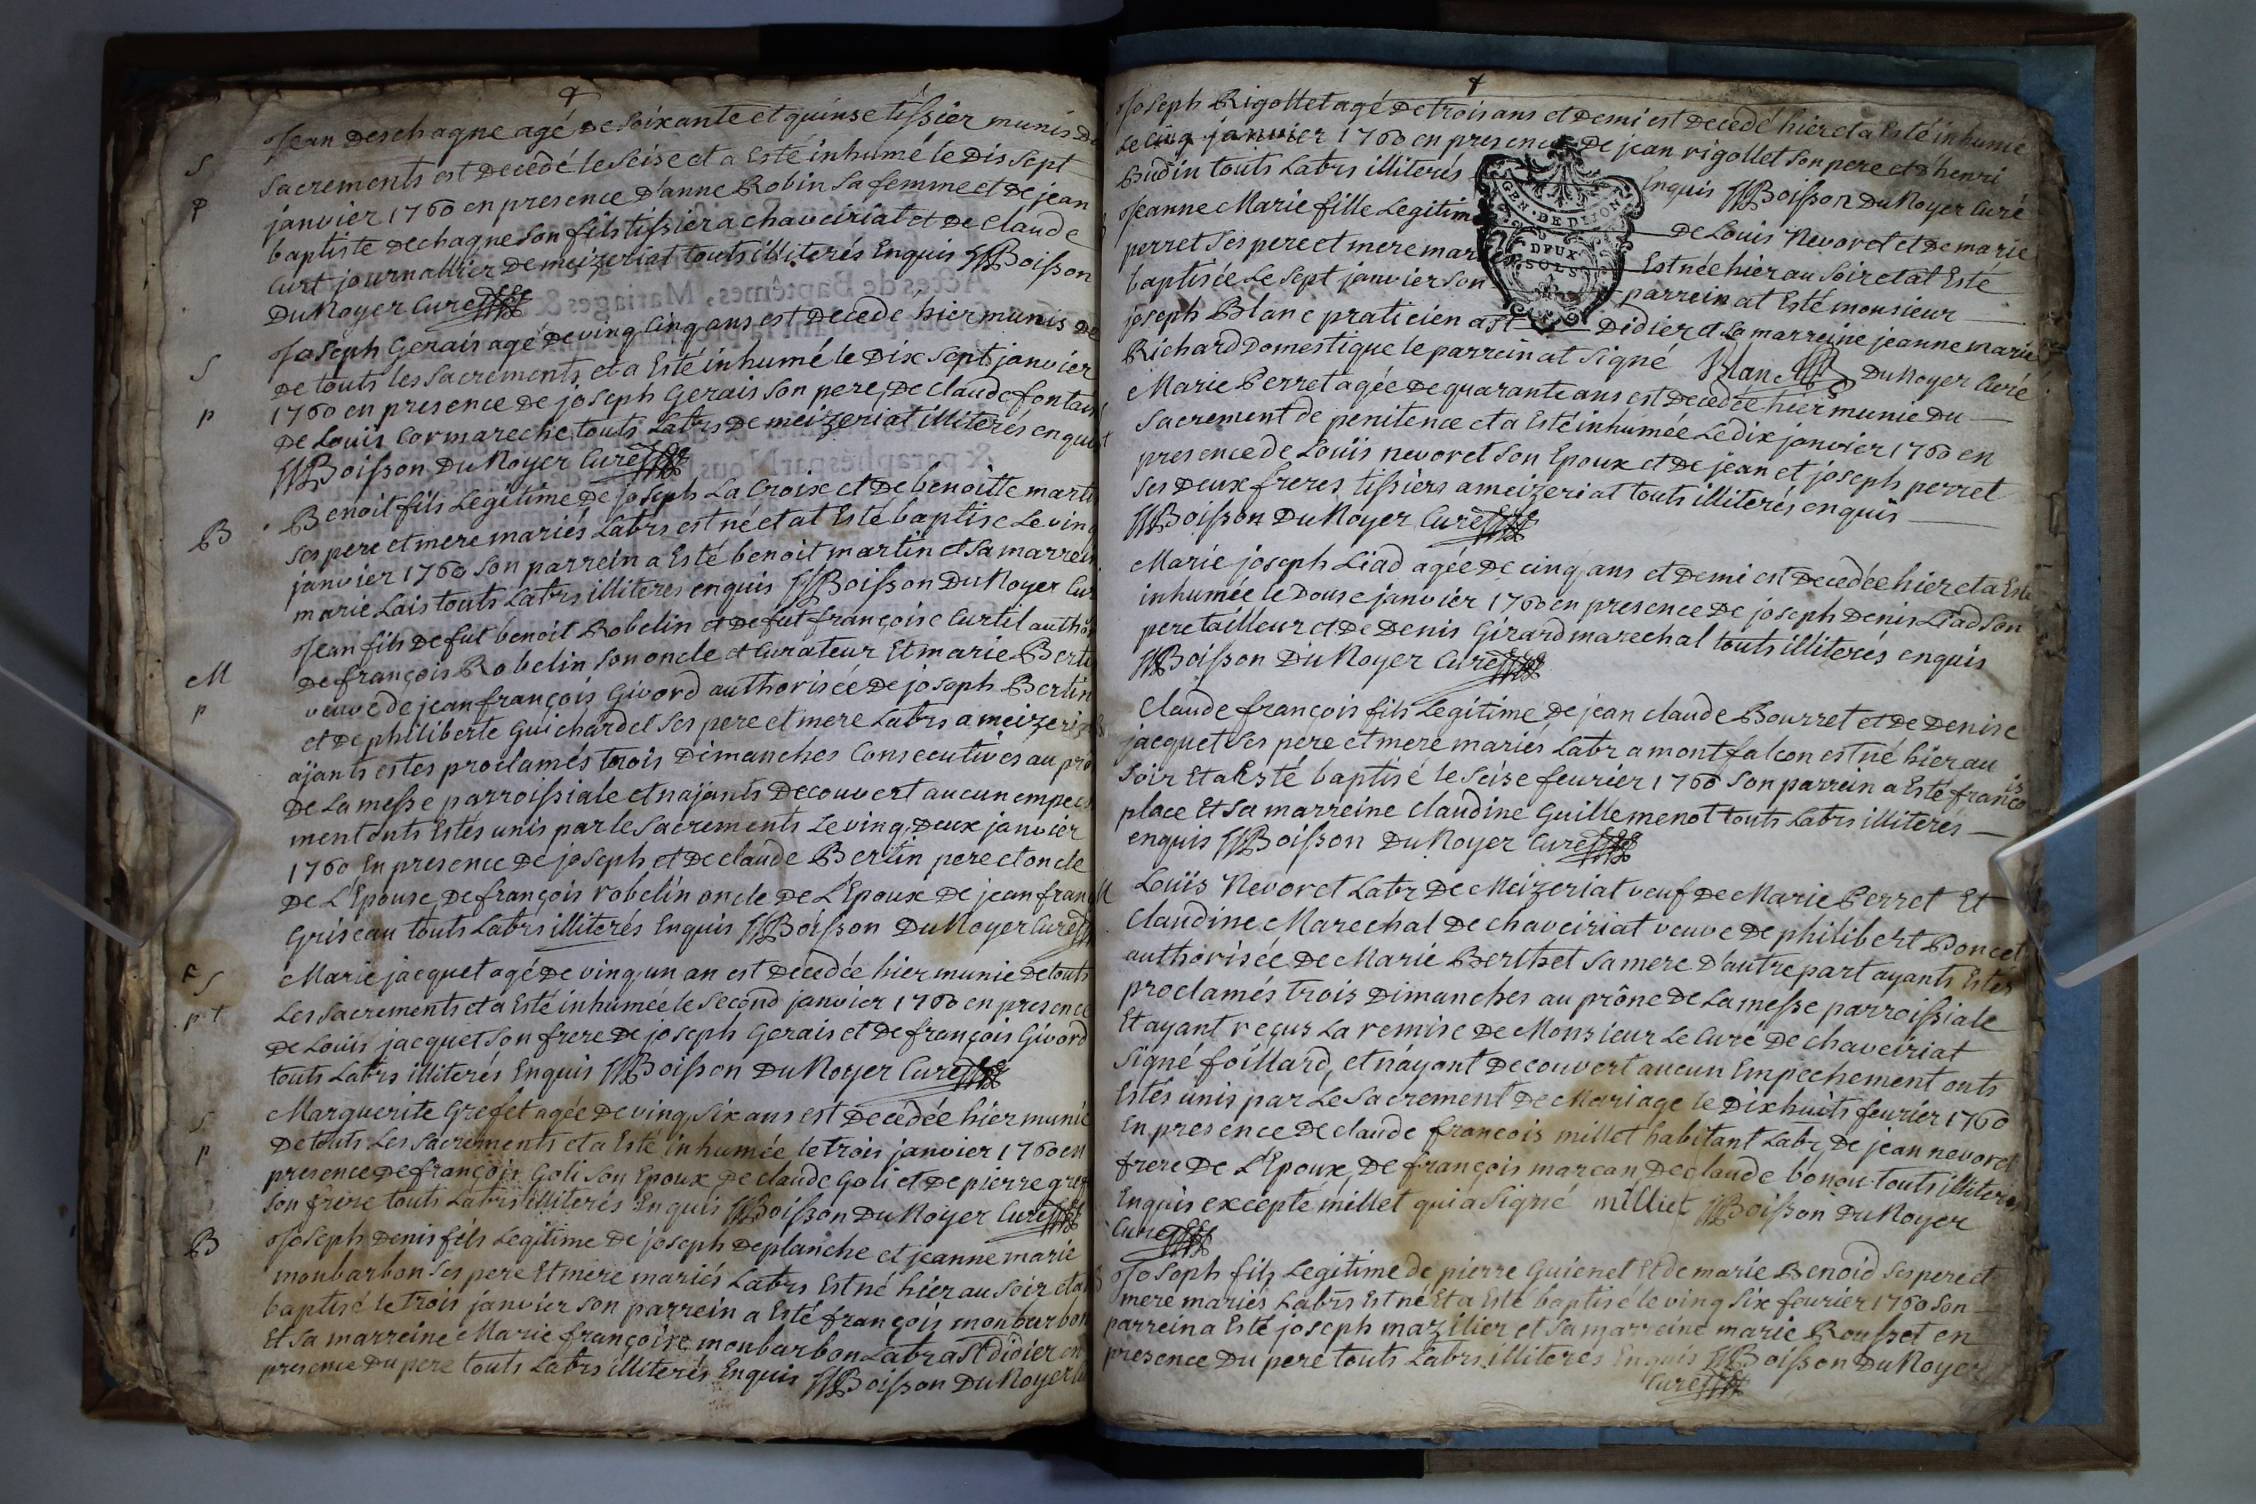 Jean Deschagne agé de soixante et quinse tissier munis de
S
sacrements est decedé le seise et a esté inhumé le dis sept
P
janvier 1760 en presence d'anne Robin sa femme et de jean
baptiste dechagne son fils tissier a chaveiriat et de claude
curt journallier de meizeriat touts illiterés enquis Boisson
DuNoyer Curé
Joseph Gerais agé de ving cinq ans est decedé hier munis de
S
de touts les sacrements et a esté inhumé le dix sept janvier
1760 en presence de joseph Gerais son pere, de claude fontaine
p
de Louis Cormareche touts Labrs de meizeriat illiterés enquis
Boisson DuNoyer Curé
Benoit fils Legitime de joseph La Croix et de benoitte martin
B
ses pere et mere mariés Labrs est né et at esté baptisé le ving
janvier 1760 son parrein a esté benoit martin et sa marreine
marie Lais touts Labrs illiterés enquis Boisson DuNoyer Curé
Jean fils de fut benoit Robelin et de fut françoise Curtil authori
de françois Robelin son oncle et curateur Et marie Bertin
M
veuve de jean françois Givord authorisée de joseph Bertin
P
et de philiberte Guichardet ses pere et mere Labrs a meizeriat
ajants estes proclamés trois Dimanches Consecutives au prô
de La messe parroissiale et najants decouvert aucun empech
ment onts Estés unis par le sacrements le ving deux janvier
1760 En presence de joseph et de claude Bertin pere et oncle
de L'Epouse, de françois robelin oncle de L'Epoux de jean fran
Griseau touts Labrs illiterés Enquis Boisson DuNoyer Curé
Marie jacquet agé de ving un an est decedée hier munie de touts
S
Les sacrements et a esté inhumée le second janvier 1760 en presence
p t
de Louis jacquet son frere de joseph Gerais et de françois Givord
touts Labrs illiterés Enquis Boisson DuNoyer Curé
Marguerite Grefet agée de ving six ans est decedée hier munie
S
de touts Les sacrements et a esté inhumée le trois janvier 1760 en
P
presence de françois Goli son Epoux de claude Goli et de pierre gref
son frère touts Labrs illiterés Enquis Boisson DuNoyer Curé
Joseph Denis fils Legitime de joseph deplanche et jeanne marie
B
monbarbon ses pere Et mere mariés Labrs Est né hier au soir et a
baptisé le trois janvier son parrein a Esté françois monbarbon
Et sa marreine Marie françoise monbarbon Labr a st didier en
presence du pere touts Labrs illiterés Enquis Boisson DuNoyer Cu
Joseph Rigollet agé de trois ans et demi est decedé hier et a esté inhumé
Le cinq janvier 1760 en presence de jean rigollet son pere et d'henri
Budin touts Labrs illiterés Enquis Boisson DuNoyer Curé
GEN. DE DIJON
DEUX
SOLS
Jeanne Marie fille Legitime de Louis Nevoret et de marie
perret ses pere et mere mariés Est née hier au soir et at Esté
baptisée Le sept janvier son parrein at Esté monsieur
joseph Blanc praticién a st Didier et La marreine jeanne marie
Richard Domestique le parrein at signé Blanc DuNoyer Curé
Marie Perret agée de quarante ans est decedée hier munie du
sacrement de penitence et a Esté inhumée Le dix janvier 1760 en
presence de Louïs nevoret son Epoux et de jean et joseph perret
ses deux freres tissiers a meizeriat touts illiterés enquis
Boisson DuNoyer Curé
Marie joseph Liad agée de cinq ans et demi est decedée hier et a Esté
inhumée le douse janvier 1760 en presence de joseph denis Liad son
pere tailleur et de Denis Girard marechal touts illiterés enquis
Boisson DuNoyer Curé
Claude françois fils Legitime de jean claude Bourret et de Denise
jacquet ses pere et mere mariés Labr a montfalcon est né hier au
soir Et a Esté baptisé le seise feurier 1760 son parrein a Esté françois
place Et sa marreine claudine Guillemenot touts Labrs illiterés
enquis Boisson DuNoyer Curé
M
Loüis Nevoret Labr de Meizeriat veuf de Marie Perret Et
Claudine Marechal de chaveiriat veuve de philibert Poncet
authorisée de Marie Berthet sa mere d'autre part ayants Estés
proclamés trois Dimanches au prône de La messe parroissiale
Et ayant reçus La remise de Monsieur Le Curé de chaveiriat
signé foillard, et n'ayant decouvert aucun Empechement onts
Estés unis par Le Sacrement de Mariage le dix huits feurier 1760
En presence de claude francois millet habitant Labr, de jean nevoret
frere de L'Epoux, de françois marcan, de claude bonou touts illiterés
Enquis excepté millet qui a signé milliet Boisson DuNoyer
Curé
Joseph fils Legitime de pierre Guienet Et de marie Benoid ses pere et
mere mariés Labrs Est né Et a Esté baptisé le ving six feurier 1760 son
parrein a Esté joseph mazilier et sa marreine marie Rousset en
presence du pere touts Labrs illiterés Enquis Boisson DuNoyer
Curé